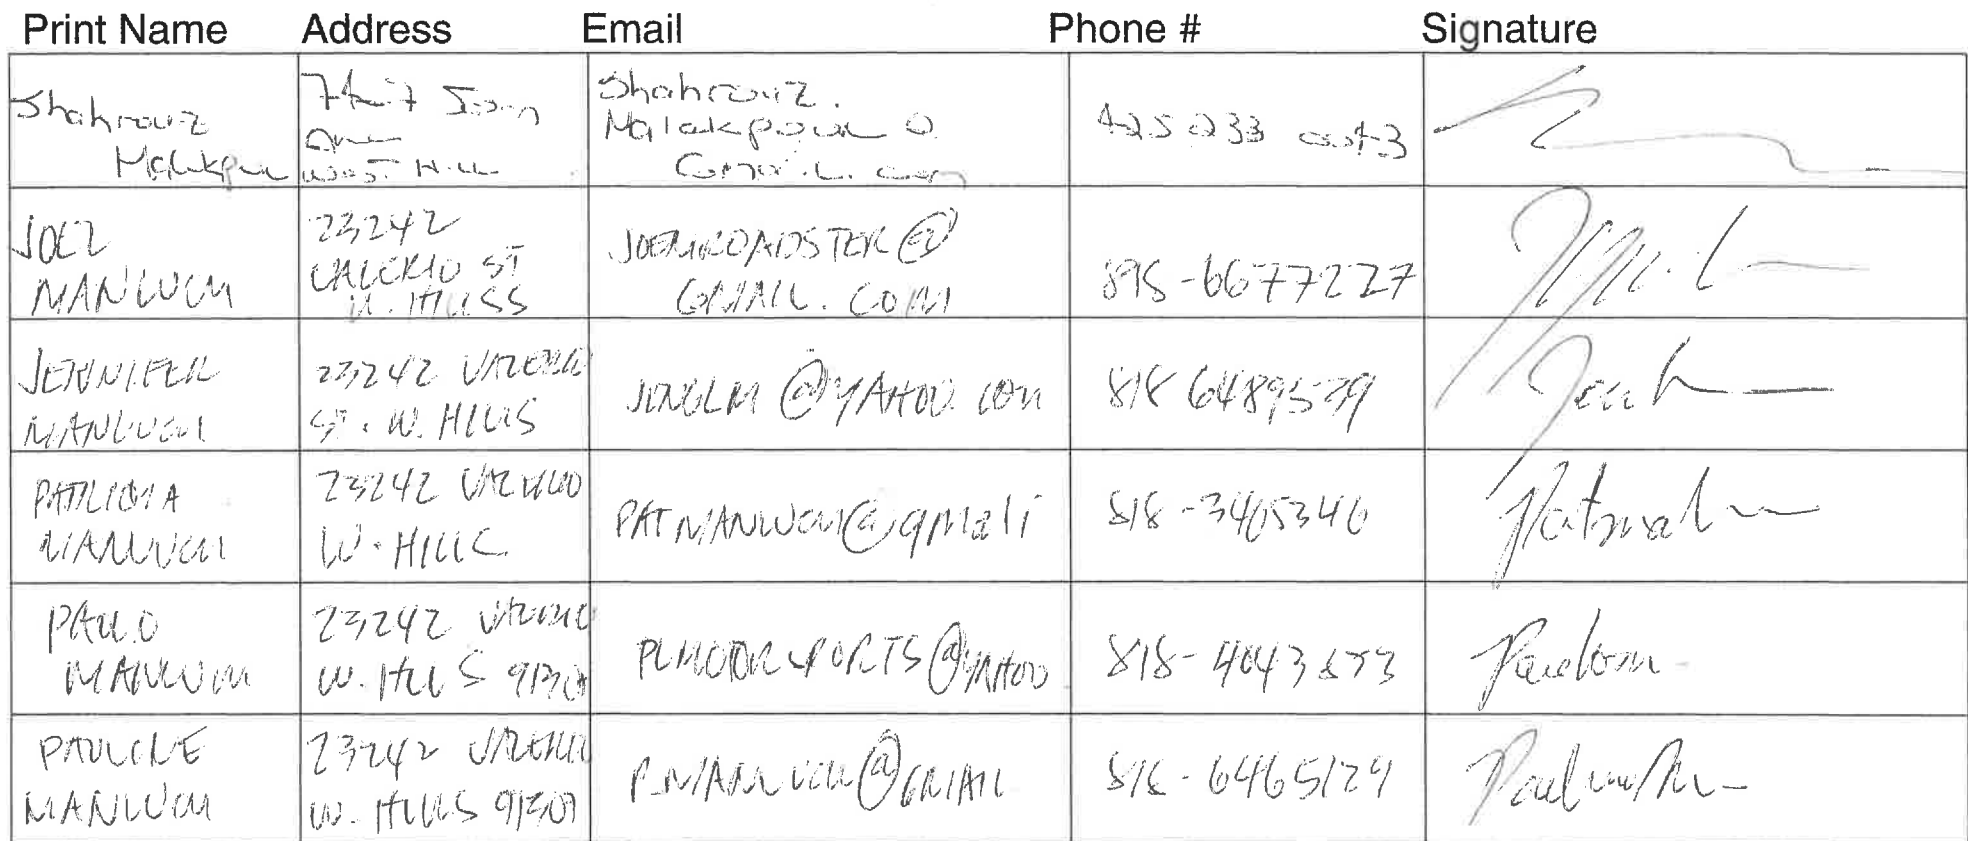 Print Name Address Email Phone # Signature
Shahrouz
Shahrouz.
Malakpour @
Gmail.com
West Hill
JOEL
MANLUCU
23242
VALERIO ST
W. HILLSS
JOEMROADSTER@
GMAIL.COM
818-6677227
JENNIFER
MANLUCU
23242 VALERIO
ST. W. HILLS
JENGLM@YAHOO.COM
818 6489539
PATRICIA
MANLUCU
23242 VALERIO
W. HILLS
PATMANLUCU@gmali
818-3465346
PAULO
MANLUCU
23242 VALERIO
W. HILLS
PLMOTORSPORTS@YAHOO
818-4043
PAULINE
MANLUCU
23242 VALERIO
W. HILLS 91307
P_MANLUCU@GMAIL
818-6465129